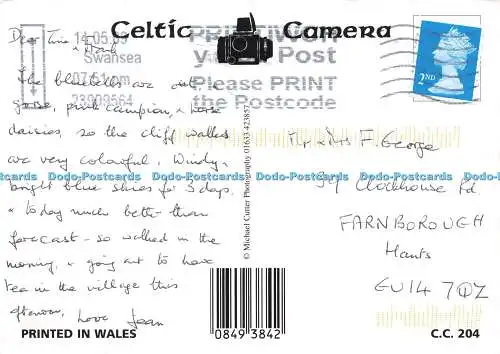 Celtic Camera
14.05.05
Swansea
07:51 pm
23909564
Post
Please PRINT
the Postcode
2ND
Dear Tina & 
The bluebells are out &
gorse, pink campion, & horse
daisies, so the cliff walks
are very colourful. Windy,
bright blue skies for 3 days
& today much better than
forecast - so walked in the
morning, & going out to have
tea in the village this
afternoon, Love Jean
© Michael Cutter Photography 01633 423857
Mr & Mrs F. George
39 Clockhouse Rd.
FARNBOROUGH
Hants
GU14 7QZ
Dodo-Postcards Dodo-Postcards Dodo-Postcards Dodo-Postcards Dodo-Postcards
PRINTED IN WALES
0849 3842
C.C. 204